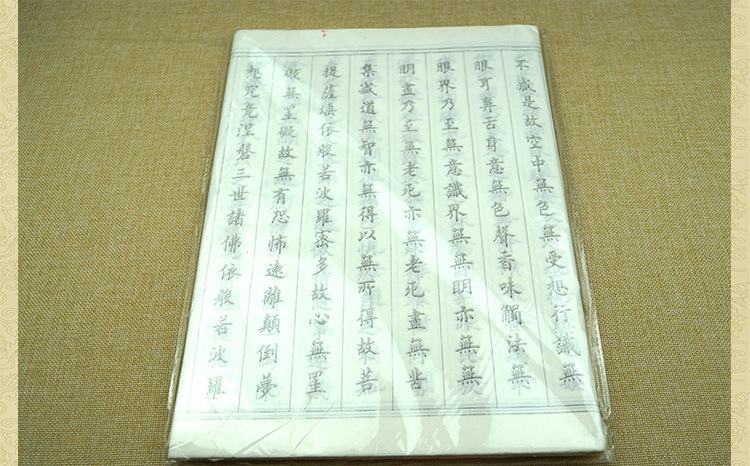 不減是故空中無色無受想行識無
眼耳鼻舌身意無色聲香味觸法無
眼界乃至無意識界無無明亦無無
明盡乃至無老死亦無老死盡無苦
集滅道無智亦無得以無所得故菩
提薩埵依般若波羅密多故心無罣
礙無罣礙故無有恐怖遠離顛倒夢
想究竟涅槃三世諸佛依般若波羅